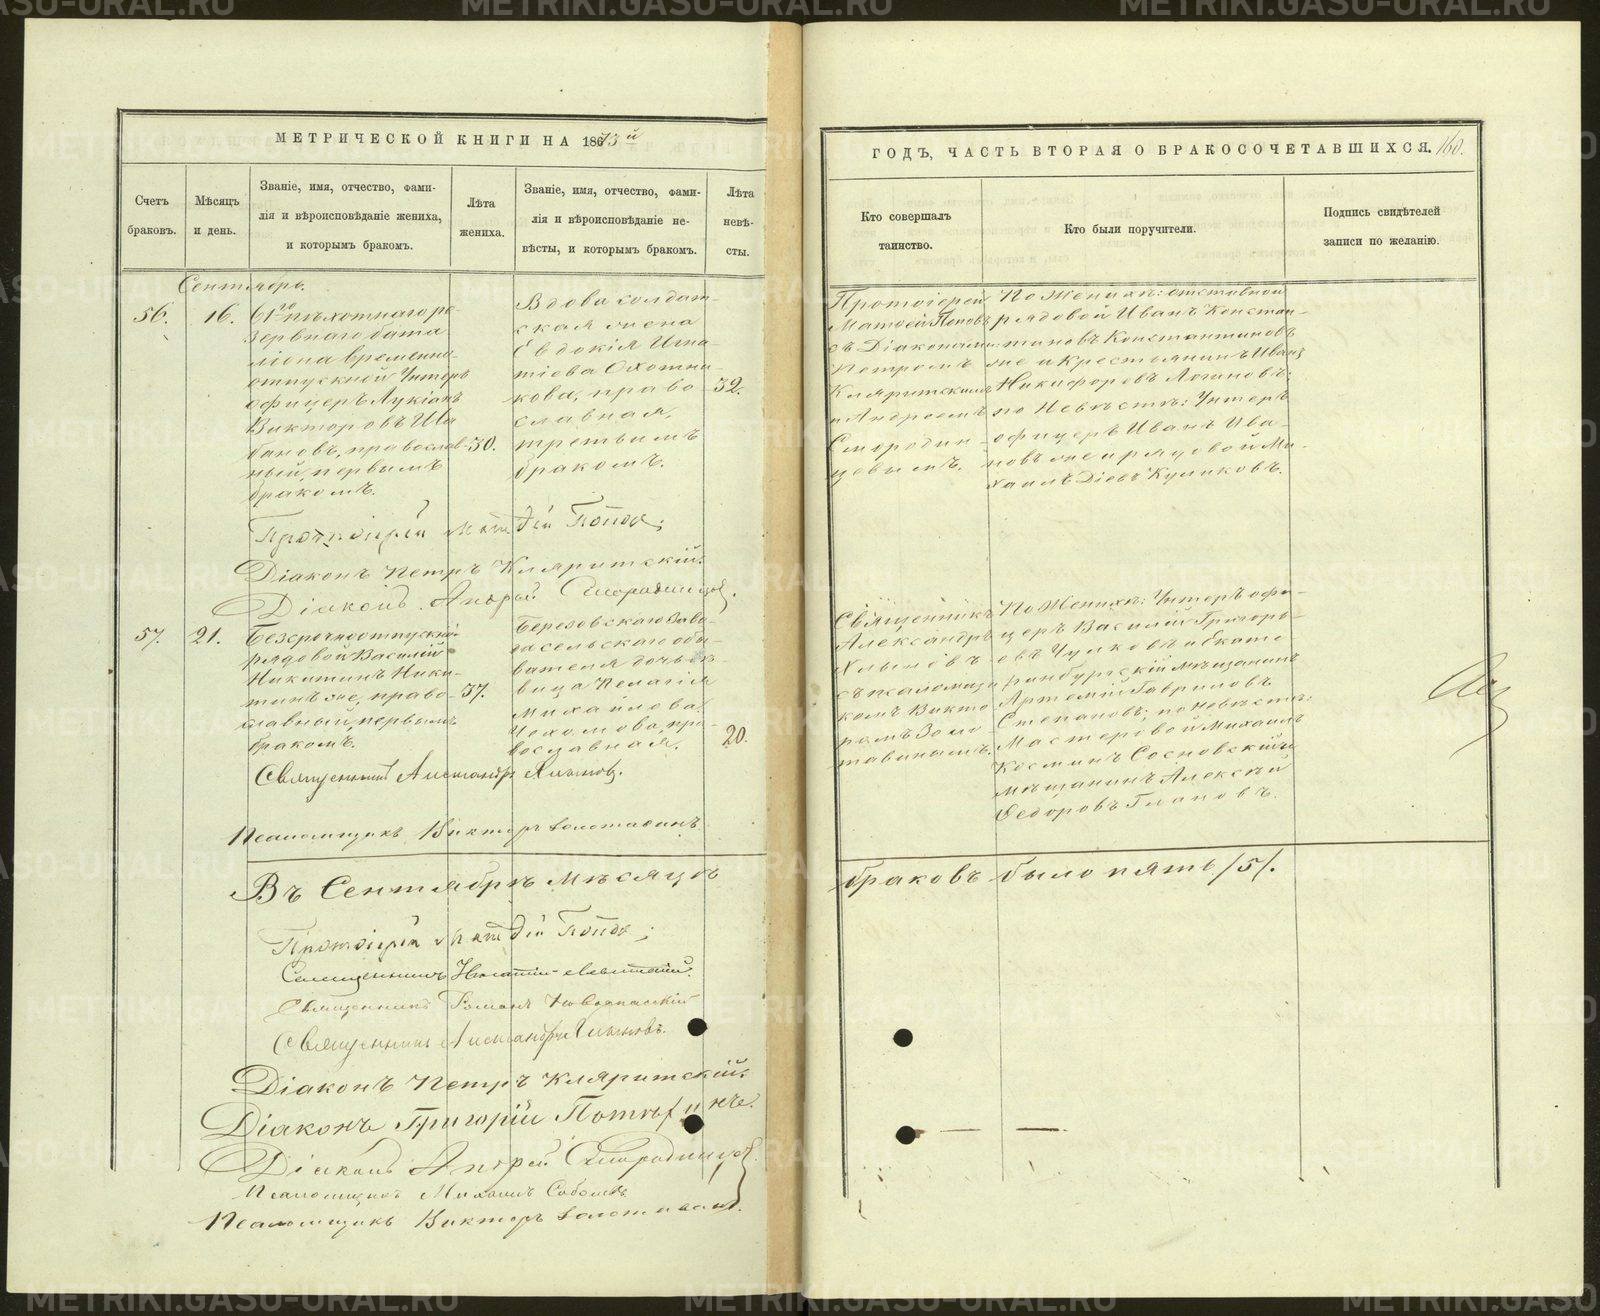 МЕТРИЧЕСКОЙ КНИГИ НА 1873й
Счетъ браковъ.
Мѣсяцъ и день.
Званіе, имя, отчество, фами-
лія и вѣроисповѣданіе жениха,
и которымъ бракомъ.
Лѣта жениха.
Званіе, имя, отчество, фами-
лія и вѣроисповѣданіе не-
вѣсты, и которымъ бракомъ.
Лѣта невѣ-
сты.
Сентябрь.
56.
16.
61го пѣхотнаго ре-
зервнаго бата
ліона временно-
отпускной Унтеръ
офицеръ Лукіанъ
Викторовъ Ша
бановъ, православ-
ный, первымъ
бракомъ.
30.
Вдова солдат-
ская жена
Евдокія Игна-
тіева Охотни-
кова, право
славная,
третьимъ
бракомъ.
32.
Протоіерей Матѳій Поповъ;
Діаконъ Петръ Кляритскій.
Діаконъ Андрей Смородинцовъ.
57.
21.
Безсрочноотпускной
рядовой Василій
Никитинъ Ники-
тинъ же, право-
славный, первымъ
бракомъ.
37.
Березовскаго Заво-
да сельскаго обы-
вателя дочь дѣ-
вица Пелагія
Михайлова
вославная.
20.
Священникъ Александръ Хлыновъ.
Псаломщикъ Викторъ Золотавинъ.
Въ Сентябрѣ мѣсяцѣ
Протоіерей Матѳій Поповъ;
Священникъ Игнатій
Священникъ Романъ Новоспасскій
Священникъ Александръ Хлыновъ.
Діаконъ Петръ Кляритскій.
Діаконъ Григорій
Діаконъ Андрей Смородинцовъ.
Псаломщикъ Михаилъ Соболевъ
Псаломщикъ Викторъ Золотавинъ.
ГОДЪ, ЧАСТЬ ВТОРАЯ О БРАКОСОЧЕТАВШИХСЯ. 160.
Кто совершалъ
таинство.
Кто были поручители.
Подпись свидѣтелей
записи по желанію.
Протоіерей
Матѳей Поповъ
съ Діаконами:
Петромъ
Кляритскимъ
и Андреемъ
Смородин-
цевымъ.
По Женихѣ: отставной
рядовой Иванъ Констан-
тиновъ Константиновъ
же и Крестьянинъ Иванъ
Никифоровъ Логиновъ;
по Невѣстѣ: Унтеръ
офицеръ Иванъ Ива-
новъ же и рядовой Ми-
хаилъ Діевъ Куликовъ.
Священникъ
Александръ
Хлыновъ
съ псаломщи
комъ Викто
ромъ Золо-
тавинымъ.
По Женихѣ: Унтеръ офи-
церъ Василій Григорь-
евъ Чулковъ и Екате
ринбургскій мѣщанинъ
Артемій Гавриловъ
Степановъ; по невѣстѣ:
Мастеровой Михаилъ
Косминъ Сосновскій и
мѣщанинъ Алексѣй
Ѳедоровъ Глановъ.
браковъ было пять /5/.
METRIKI.GASO-URAL.RU